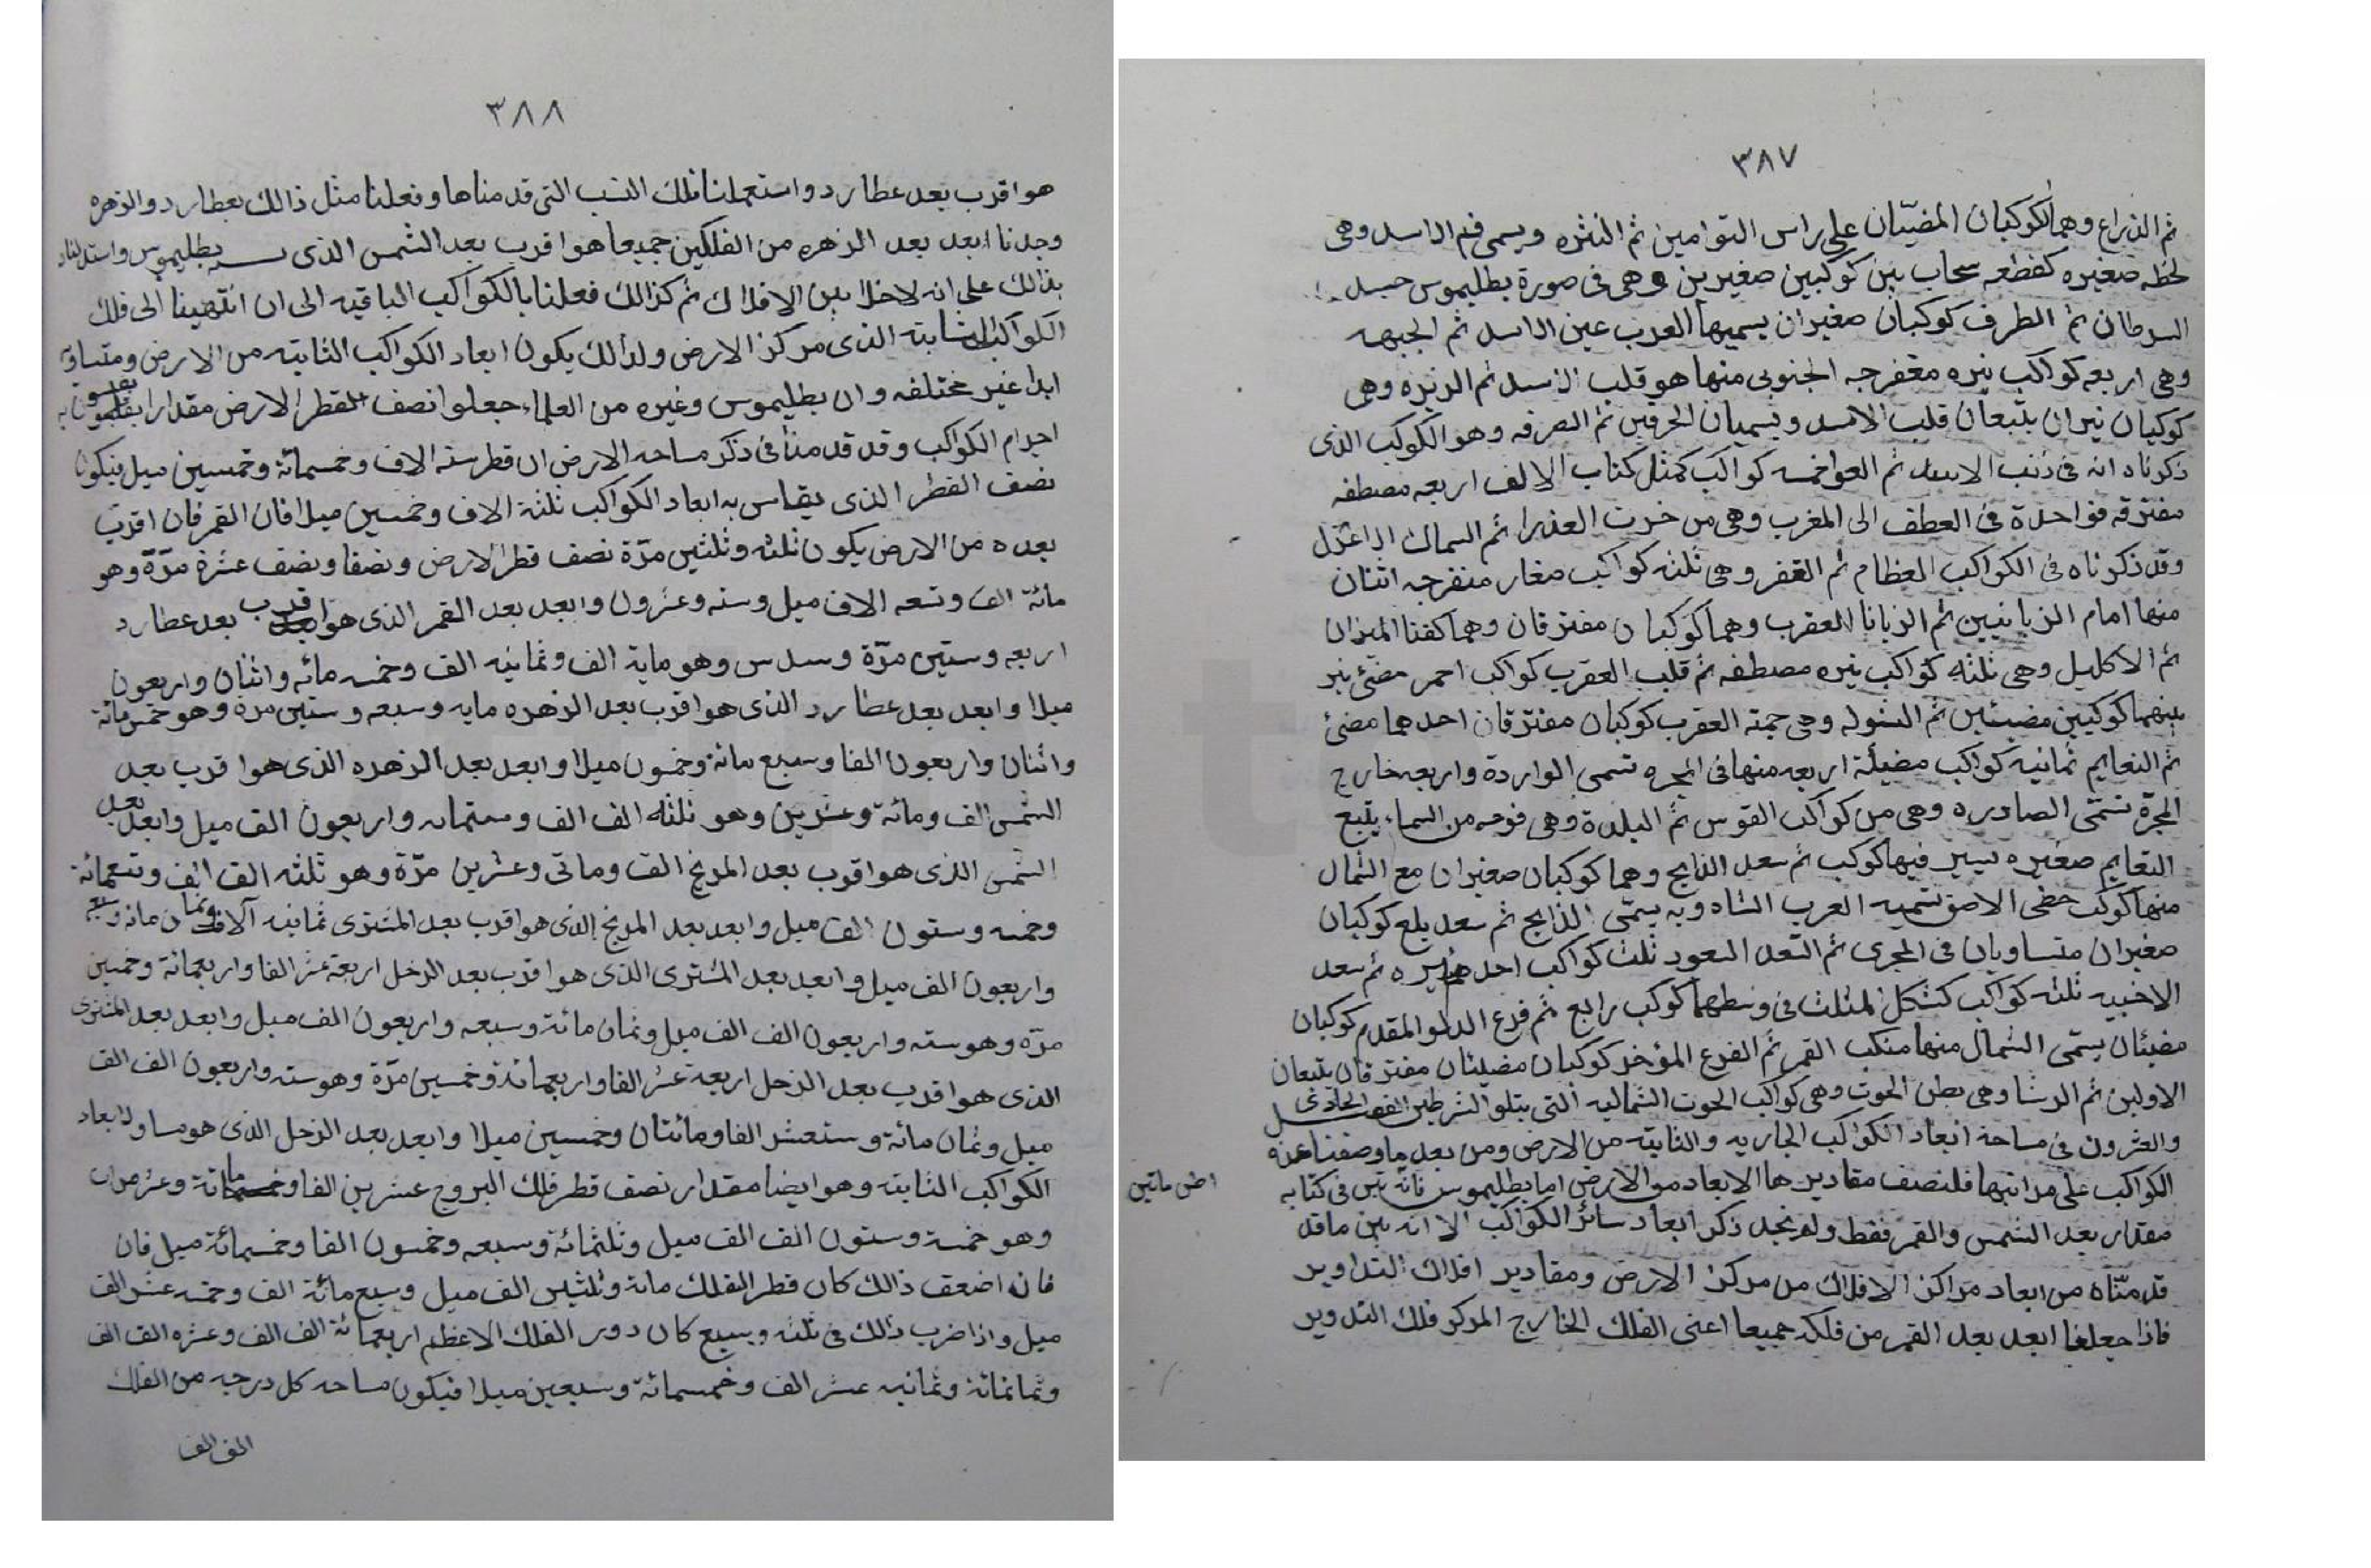 ٣٨٧
ثم الذراع وهما الكوكبان المضيّان على راس التوامين ثم النثره ويسمى فم الاسد وهى
لطخه صغيره كقطعه سحاب بين كوكبين صغيرين وهى فى صورة بطليموس
السرطان ثم الطرف كوكبان صغيران يسميها العرب عين الاسد ثم الجبهه
وهى اربعه كواكب نيره الجنوبى منها هو قلب الاسد ثم الزبره وهى
كوكبان نيران يتبعان قلب الاسد ويسميان الخرقين ثم الصرفه وهو الكوكب الذى
ذكرناه انه فى ذنب الاسد ثم العوا خمسه كواكب كمثل كتاب الالف اربعه مصطفه
مفترقه فواحدة فى العطف الى المغرب وهى من العذرا ثم السماك الاعزل
وقد ذكرناه فى الكواكب العظام ثم الغفر وهى ثلثه كواكب صغار منفرجه اثنان
منها امام الزبانيين ثم الزبانا العقرب وهما كوكبان مفترقان وهما كفتا الميزان
ثم الاكليل وهى ثلثه كواكب نيره مصطفه ثم قلب العقرب كواكب احمر مضئ نير
بينهما كوكبين مضيئين ثم الشوله وهى حمة العقرب كوكبان مفترقان احدهما مضئ
ثم النعايم ثمانيه كواكب مضيئة اربعه منها فى المجره تسمى الواردة واربعه خارج
المجرّة تسمّى الصادره وهى من كواكب القوس ثم البلدة وهى من السماء يتبع
النعايم صغيره يسير فيها كوكب ثم سعد الذابح وهما كوكبان صغيران مع الشمال
منها كوكب تسميه العرب الشاه وبه يسمّى الذابح ثم سعد بلع كوكبان
صغيران متساويان فى المجرى ثم السعد السعود ثلث كواكب ثم سعد
الاخبيه ثلثه كواكب كشكل المثلث فى وسطها كوكب رابع ثم فرع الدلو المقدم كوكبان
مضيئان يسمّى الشمال منها منكب ثم الفرع المؤخر كوكبان مضيئان مفترقان يتبعان
الاولين ثم الرشا وهى بطن الحوت وهى كواكب الحوت الشماليه التى يتلو الشرطين الفصل الحادى
والعشرون فى مساحة ابعاد الكواكب الجاريه والثابته من الارض ومن بعد ما وصفنا
الكواكب على مراتبها فلنصف مقادير هذا الابعاد من الارض اما بطليموس فانّه بيّن فى كتابه
مقدار بعد الشمس والقمر فقط ولم نجد ذكر ابعاد سائر الكواكب الا انه بين ما قد
قدمنّاه من ابعاد مراكز الافلاك من مركز الارض ومقادير افلاك التداوير
فاذا جعلنا ابعد بعد القمر من فلكه جميعا اعنى الفلك الخارج المركز فلك التدوير
٣٨٨
هو اقرب بعد عطارد واستعملنا تلك النسب التى قدمناها وفعلنا مثل ذالك بعطارد والزهره
وجدنا ابعد بعد الزهره من الفلكين جميعا هو اقرب بعد الشمس الذى بطليموس واستدللنا
بذالك على انه لا خلا بين الافلاك ثم كذالك فعلنا بالكواكب الباقيه الى ان انتهينا الى فلك
الكواكب الثابته الذى مركز الارض ولذالك يكون ابعاد الكواكب الثابته من الارض ومتساوية
ابدا غير مختلفه وان بطليموس وغيره من العلماء جعلوا نصف القطر الارض مقدارا
اجرام الكواكب وقد قدمنا فى ذكر مساحه الارض ان قطر سته الاف وخمسمائة وخمسين ميل فيكون
نصف القطر الذى يقاس به ابعاد الكواكب ثلثة الاف وخمسين ميلا فان القمر فان اقرب
بعده من الارض يكون ثلثه وثلثين مرّة نصف قطر الارض ونصفا ونصف عشرة مرّة وهو
مائة الف وتسعه الاف ميل وسته وعشرون وابعد بعد القمر الذى هو اقرب بعد عطارد
اربعه وستين مرّة وسدس وهو ماية الف وثمانيه الف وخمسه مائه واثنان واربعون
ميلا وابعد بعد عطارد الذى هو اقرب بعد الزهره مايه وسبعه وستين مرة وهو خمس مائة
واثنان واربعون الفا وسبع مائة وخمسون ميلا وابعد بعد الزهره الذى هو اقرب بعد
الشمس الف ومائة وعشرين وهو ثلثه الف الف وستمائه واربعون الف ميل وابعد بعد
الشمس الذى هو اقرب بعد المريخ الف وماتى وعشرين مرّة وهو ثلثه الف الف وتسعمائة
وخمسه وستون الف ميل وابعد بعد المريخ الذى هو اقرب بعد المشترى ثمانيه آلاف وثمان مائة وسبعه
واربعون الف ميل وابعد بعد المشترى الذى هو اقرب بعد الزحل اربعة عشر الفا واربعمائة وخمسين
مرّة وهو سته واربعون الف الف ميل وثمان مائة وسبعه واربعون الف ميل وابعد بعد المشترى
الذى هو اقرب بعد الزحل اربعة عشر الفا واربعمائة وخمسين مرّة وهو سته واربعون الف الف
ميل وثمان مائة وستعشر الفا ومائتان وخمسين ميلا وابعد بعد الزحل الذى هو مساو لابعاد
الكواكب الثابته وهو ايضا مقدار نصف قطر فلك البروج عشرين الفا وعشرمرات
وهو خمسة وستون الف الف ميل وثلثمائة وسبعه وخمسون الفا وخمسمائة ميل فان
فان اضعف ذالك كان قطر الفلك مائة وثلثين الف ميل وسبع مائة الف وخمسه عشر الف
ميل واذا ضرب ذالك فى ثلثه وسبع كان دور الفلك الاعظم اربعمائة الف الف وعشره الف الف
وثمانمائة وثمانيه عشر الف وخمسمائة وسبعين ميلا فيكون مساحه كل درجه من الفلك
الف الف